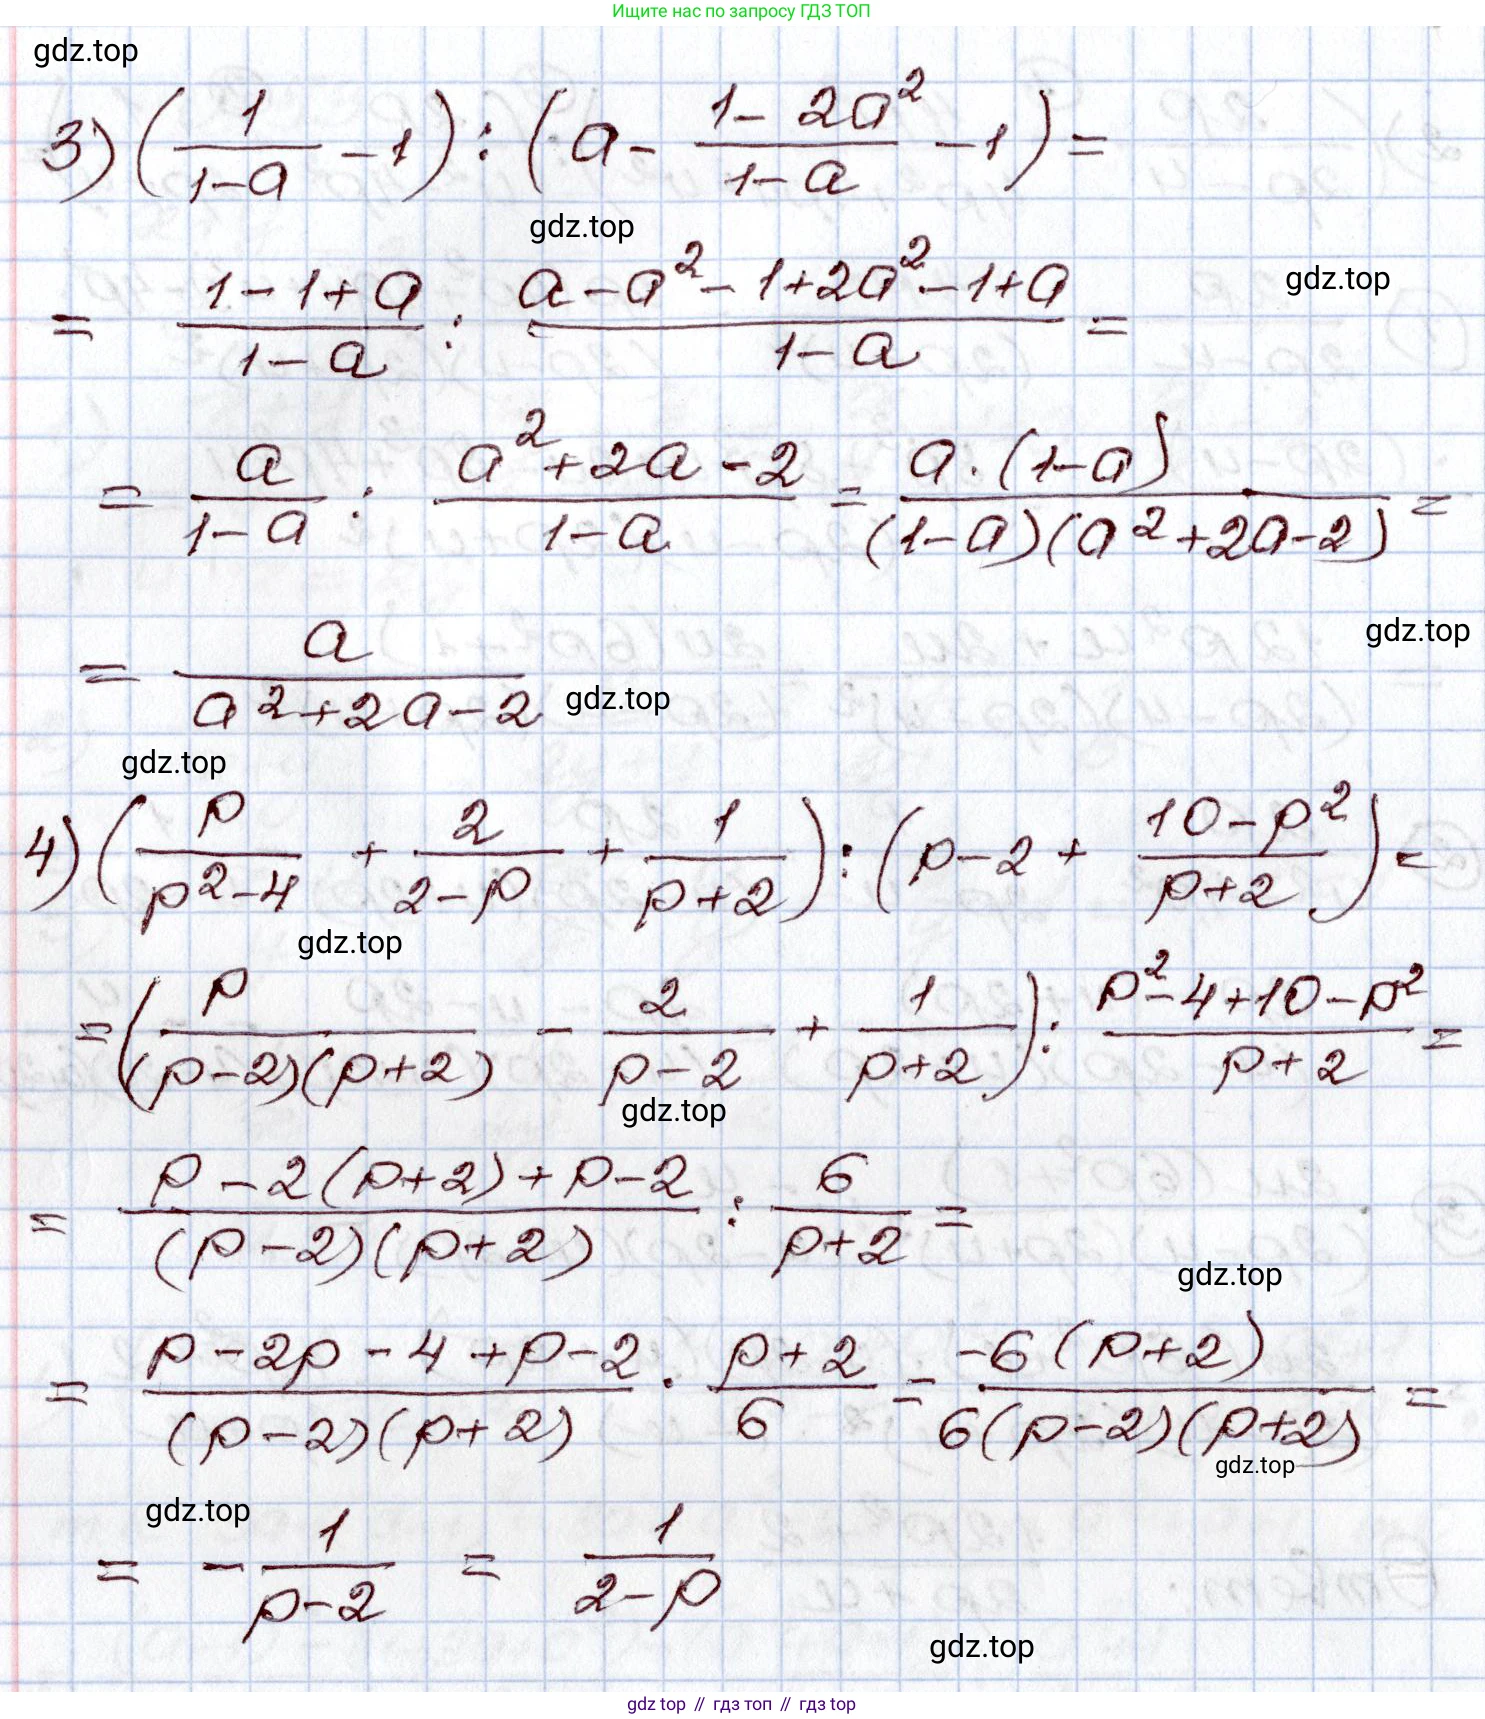 Ищите нас по запросу ГДЗ ТОП
gdz.top
3) (1/(1-a) - 1) : (a - (1-2a²)/(1-a) - 1) =
gdz.top
gdz.top
= (1-1+a)/(1-a) : (a-a²-1+2a²-1+a)/(1-a) =
= a/(1-a) : (a²+2a-2)/(1-a) = (a·(1-a))/((1-a)(a²+2a-2)) =
gdz.top
= a/(a²+2a-2)
gdz.top
gdz.top
4) (p/(p²-4) + 2/(2-p) + 1/(p+2)) : (p-2 + (10-p²)/(p+2)) =
gdz.top
= (p/((p-2)(p+2)) - 2/(p-2) + 1/(p+2)) : (p²-4+10-p²)/(p+2) =
gdz.top
= (p-2(p+2)+p-2)/((p-2)(p+2)) : 6/(p+2) =
gdz.top
= (p-2p-4+p-2)/((p-2)(p+2)) · (p+2)/6 = (-6(p+2))/(6(p-2)(p+2)) =
gdz.top
gdz.top
= - 1/(p-2) = 1/(2-p)
gdz.top
gdz top // гдз топ // gdz top